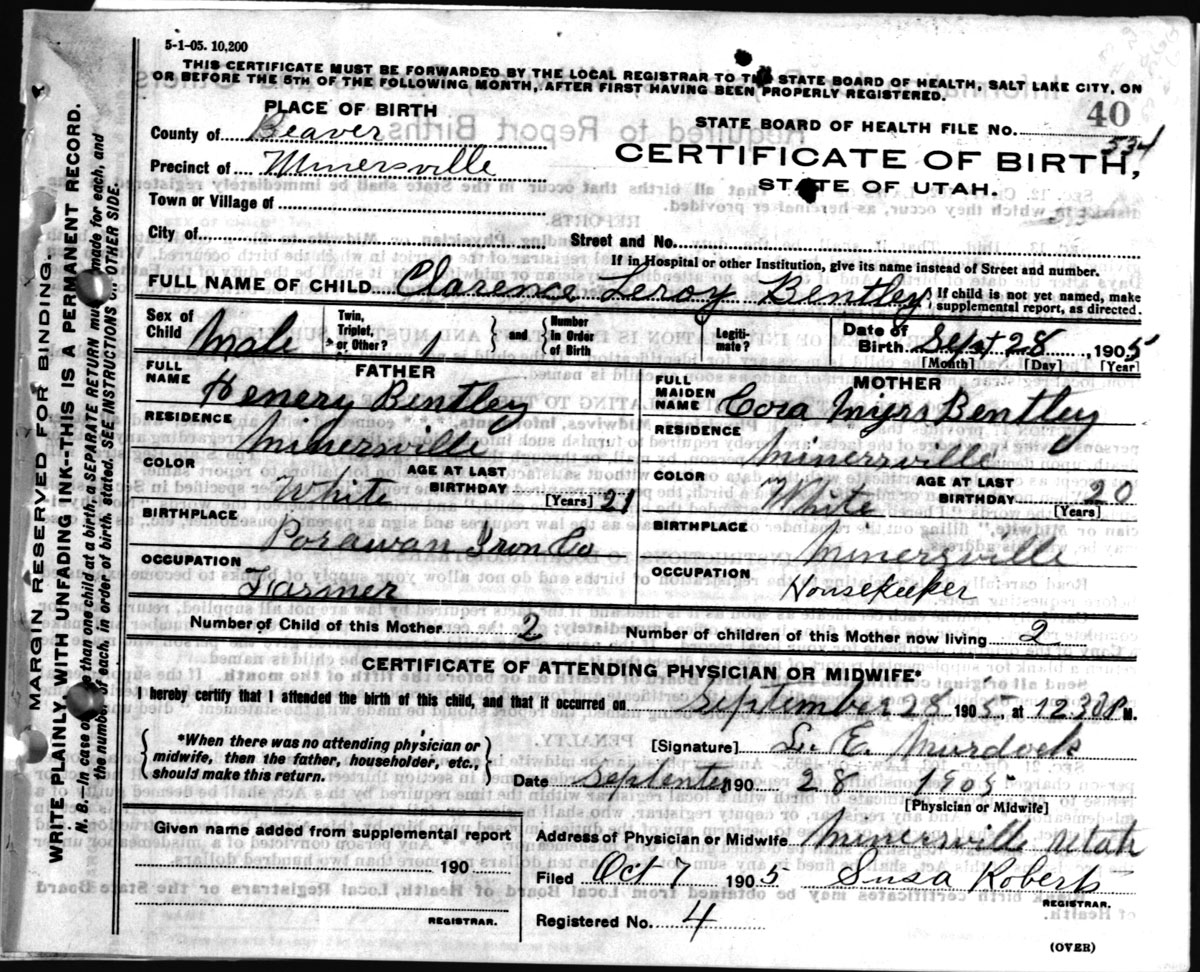 5-1-05. 10,200
THIS CERTIFICATE MUST BE FORWARDED BY THE LOCAL REGISTRAR TO THE STATE BOARD OF HEALTH, SALT LAKE CITY, ON
OR BEFORE THE 5TH OF THE FOLLOWING MONTH, AFTER FIRST HAVING BEEN PROPERLY REGISTERED.
PLACE OF BIRTH
County of Beaver
Precinct of Minersville
Town or Village of
City of
40
STATE BOARD OF HEALTH FILE No. 534
CERTIFICATE OF BIRTH,
STATE OF UTAH.
Street and No.
If in Hospital or other Institution, give its name instead of Street and number.
FULL NAME OF CHILD Clarence Leroy Bentley { If child is not yet named, make
supplemental report, as directed.
Sex of Child Male
Twin, Triplet, or Other? 1 } and { Number in Order of Birth
Legitimate?
Date of Birth Sept 28, 1905
[Month] [Day] [Year]
FATHER
FULL NAME Henery Bentley
RESIDENCE Minersville
COLOR White AGE AT LAST BIRTHDAY 21 [Years]
BIRTHPLACE Porawan Iron Co
OCCUPATION Farmer
MOTHER
FULL MAIDEN NAME Cora Myrs Bentley
RESIDENCE Minersville
COLOR White AGE AT LAST BIRTHDAY 20 [Years]
BIRTHPLACE Minersville
OCCUPATION Housekeeper
Number of Child of this Mother 2 Number of children of this Mother now living 2
CERTIFICATE OF ATTENDING PHYSICIAN OR MIDWIFE*
I hereby certify that I attended the birth of this child, and that it occurred on September 28 1905, at 1230 P.M.
{ *When there was no attending physician or
midwife, then the father, householder, etc.,
should make this return. }
[Signature] L. E. Murdock
Date September 190 28 1905
[Physician or Midwife]
Given name added from supplemental report
190
REGISTRAR.
Address of Physician or Midwife Minersville Utah
Filed Oct 7 1905 Susa Roberts
REGISTRAR.
Registered No. 4
(OVER)
MARGIN RESERVED FOR BINDING.
WRITE PLAINLY, WITH UNFADING INK--THIS IS A PERMANENT RECORD.
N. B.—In case of more than one child at a birth, a SEPARATE RETURN must be made for each, and
the number of each, in order of birth, stated. SEE INSTRUCTIONS ON OTHER SIDE.